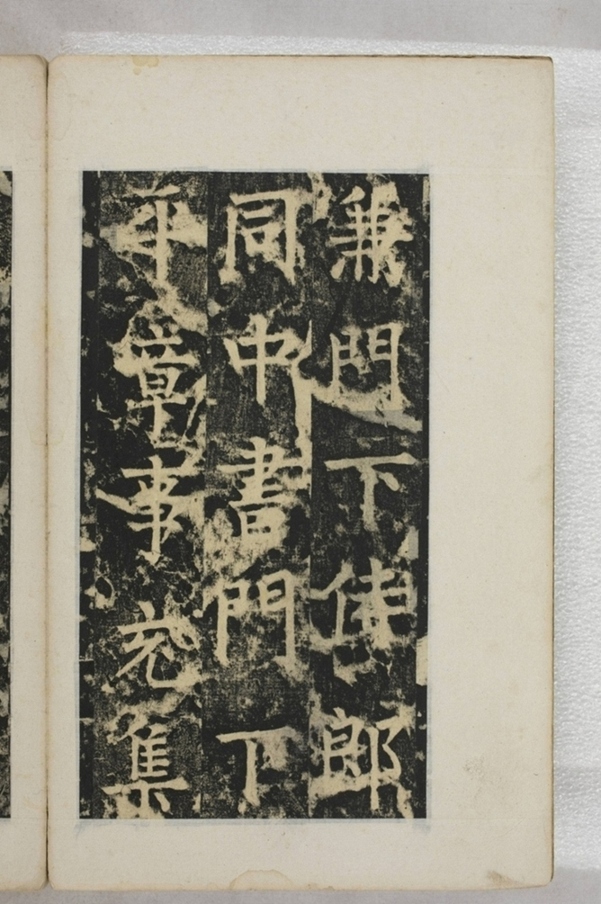 兼門下侍郎
同中書門下
平章事充集